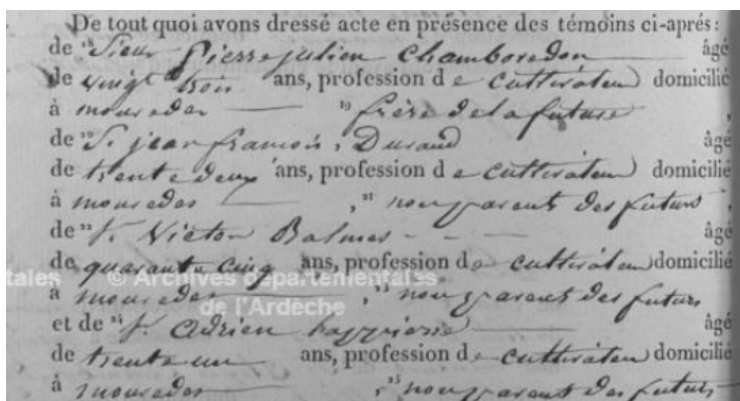 De tout quoi avons dressé acte en présence des témoins ci-aprés:
de 18 Sieur Pierre julien Chamboredon âgé
de vingt trois ans, profession de cultivateur domicilié
à 19 frère de la future,
de 20 S. jean francois Durand âgé
de trente deux ans, profession de cultivateur domicilié
à 21 non parent des futurs,
de 22 S. Victor Balmes âgé
de quarante cinq ans, profession de cultivateur domicilié
à 23 non parent des futurs
et de 24 S. Adrien âgé
de trente un ans, profession de cultivateur domicilié
à 25 non parent des futurs
tales © Archives départementales
de l'Ardèche